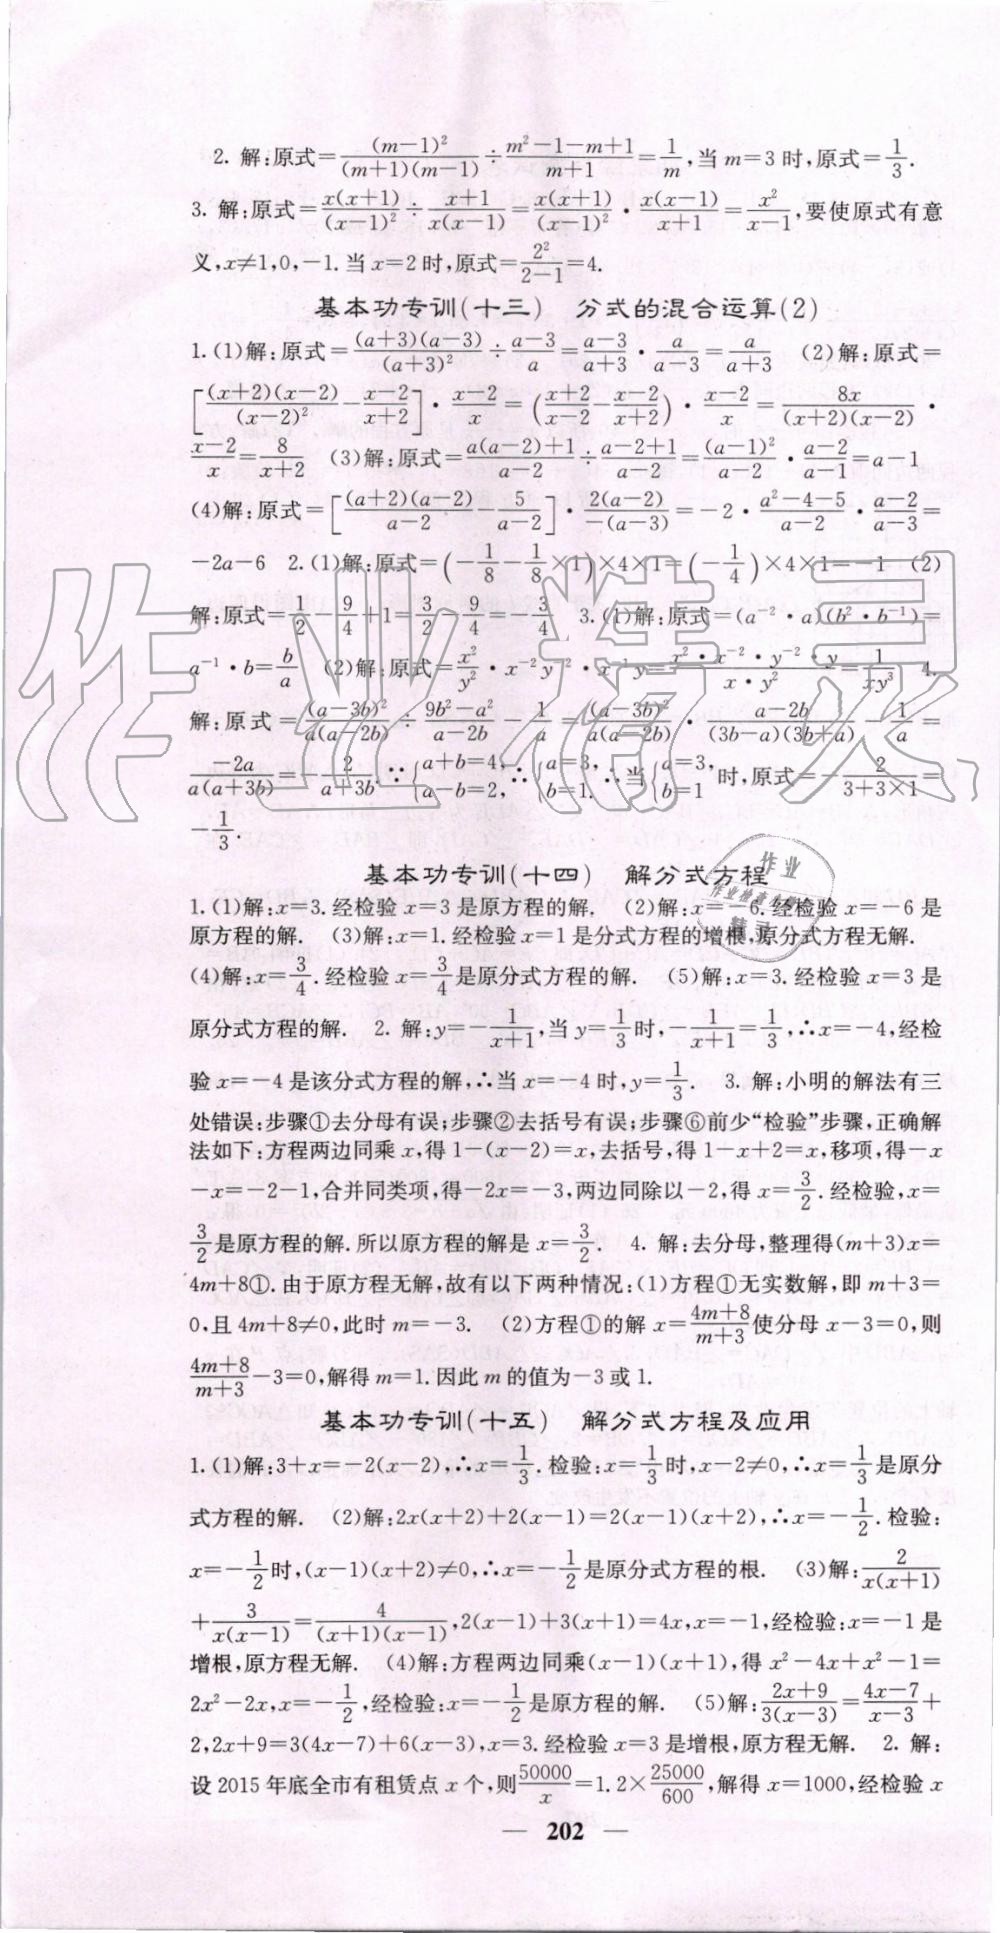 2. 解:原式=\frac{(m-1)^2}{(m+1)(m-1)}÷\frac{m^2-1-m+1}{m+1}=\frac{1}{m},当 m=3 时,原式=\frac{1}{3}.
3. 解:原式=\frac{x(x+1)}{(x-1)^2}÷\frac{x+1}{x(x-1)}=\frac{x(x+1)}{(x-1)^2}·\frac{x(x-1)}{x+1}=\frac{x^2}{x-1},要使原式有意
义,x≠1,0,-1.当 x=2 时,原式=\frac{2^2}{2-1}=4.
基本功专训(十三) 分式的混合运算(2)
1.(1)解:原式=\frac{(a+3)(a-3)}{(a+3)^2}÷\frac{a-3}{a}=\frac{a-3}{a+3}·\frac{a}{a-3}=\frac{a}{a+3} (2)解:原式=
[\frac{(x+2)(x-2)}{(x-2)^2}-\frac{x-2}{x+2}]·\frac{x-2}{x}=(\frac{x+2}{x-2}-\frac{x-2}{x+2})·\frac{x-2}{x}=\frac{8x}{(x+2)(x-2)}·
\frac{x-2}{x}=\frac{8}{x+2} (3)解:原式=\frac{a(a-2)+1}{a-2}÷\frac{a-2+1}{a-2}=\frac{(a-1)^2}{a-2}·\frac{a-2}{a-1}=a-1
(4)解:原式=[\frac{(a+2)(a-2)}{a-2}-\frac{5}{a-2}]·\frac{2(a-2)}{-(a-3)}=-2·\frac{a^2-4-5}{a-2}·\frac{a-2}{a-3}=
-2a-6 2.(1)解:原式=(-\frac{1}{8}-\frac{1}{8}×1)×4×1=(-\frac{1}{4})×4×1=-1 (2)
解:原式=\frac{1}{2}-\frac{9}{4}+1=\frac{3}{2}-\frac{9}{4}=-\frac{3}{4} 3.(1)解:原式=(a^{-2}·a)(b^2·b^{-1})=
a^{-1}·b=\frac{b}{a} (2)解:原式=\frac{x^2}{y^2}·x^{-2}y^{-2}·x^{-1}y=\frac{x^2·x^{-2}·y^{-2}·y}{x·y^2}=\frac{1}{xy^3} 4.
解:原式=\frac{(a-3b)^2}{a(a-2b)}÷\frac{9b^2-a^2}{a-2b}-\frac{1}{a}=\frac{(a-3b)^2}{a(a-2b)}·\frac{a-2b}{(3b-a)(3b+a)}-\frac{1}{a}=
\frac{-2a}{a(a+3b)}=-\frac{2}{a+3b}.∵{a+b=4, a-b=2,∴{a=3, b=1.∴当{a=3, b=1时,原式=-\frac{2}{3+3×1}=
-\frac{1}{3}.
基本功专训(十四) 解分式方程
1.(1)解:x=3.经检验 x=3 是原方程的解. (2)解:x=-6.经检验 x=-6 是
原方程的解. (3)解:x=1.经检验 x=1 是分式方程的增根,原分式方程无解.
(4)解:x=\frac{3}{4}.经检验 x=\frac{3}{4}是原分式方程的解. (5)解:x=3.经检验 x=3 是
原分式方程的解. 2. 解:y=-\frac{1}{x+1},当 y=\frac{1}{3}时,-\frac{1}{x+1}=\frac{1}{3},∴x=-4,经检
验 x=-4 是该分式方程的解,∴当 x=-4 时,y=\frac{1}{3}. 3. 解:小明的解法有三
处错误:步骤①去分母有误;步骤②去括号有误;步骤⑥前少“检验”步骤,正确解
法如下:方程两边同乘 x,得 1-(x-2)=x,去括号,得 1-x+2=x,移项,得-x
-x=-2-1,合并同类项,得-2x=-3,两边同除以-2,得 x=\frac{3}{2}.经检验,x=
\frac{3}{2}是原方程的解.所以原方程的解是 x=\frac{3}{2}. 4. 解:去分母,整理得(m+3)x=
4m+8①.由于原方程无解,故有以下两种情况:(1)方程①无实数解,即 m+3=
0,且 4m+8≠0,此时 m=-3. (2)方程①的解 x=\frac{4m+8}{m+3}使分母 x-3=0,则
\frac{4m+8}{m+3}-3=0,解得 m=1.因此 m 的值为-3 或 1.
基本功专训(十五) 解分式方程及应用
1.(1)解:3+x=-2(x-2),∴x=\frac{1}{3}.检验:x=\frac{1}{3}时,x-2≠0,∴x=\frac{1}{3}是原分
式方程的解. (2)解:2x(x+2)+2(x-1)=2(x-1)(x+2),∴x=-\frac{1}{2}.检验:
x=-\frac{1}{2}时,(x-1)(x+2)≠0,∴x=-\frac{1}{2}是原分式方程的根. (3)解:\frac{2}{x(x+1)}
+\frac{3}{x(x-1)}=\frac{4}{(x+1)(x-1)},2(x-1)+3(x+1)=4x,x=-1,经检验:x=-1 是
增根,原方程无解. (4)解:方程两边同乘(x-1)(x+1),得 x^2-4x+x^2-1=
2x^2-2x,x=-\frac{1}{2},经检验:x=-\frac{1}{2}是原方程的解. (5)解:\frac{2x+9}{3(x-3)}=\frac{4x-7}{x-3}+
2,2x+9=3(4x-7)+6(x-3),x=3.经检验 x=3 是增根,原方程无解. 2. 解:
设 2015 年底全市有租赁点 x 个,则\frac{50000}{x}=1.2×\frac{25000}{600},解得 x=1000,经检验 x
— 202 —